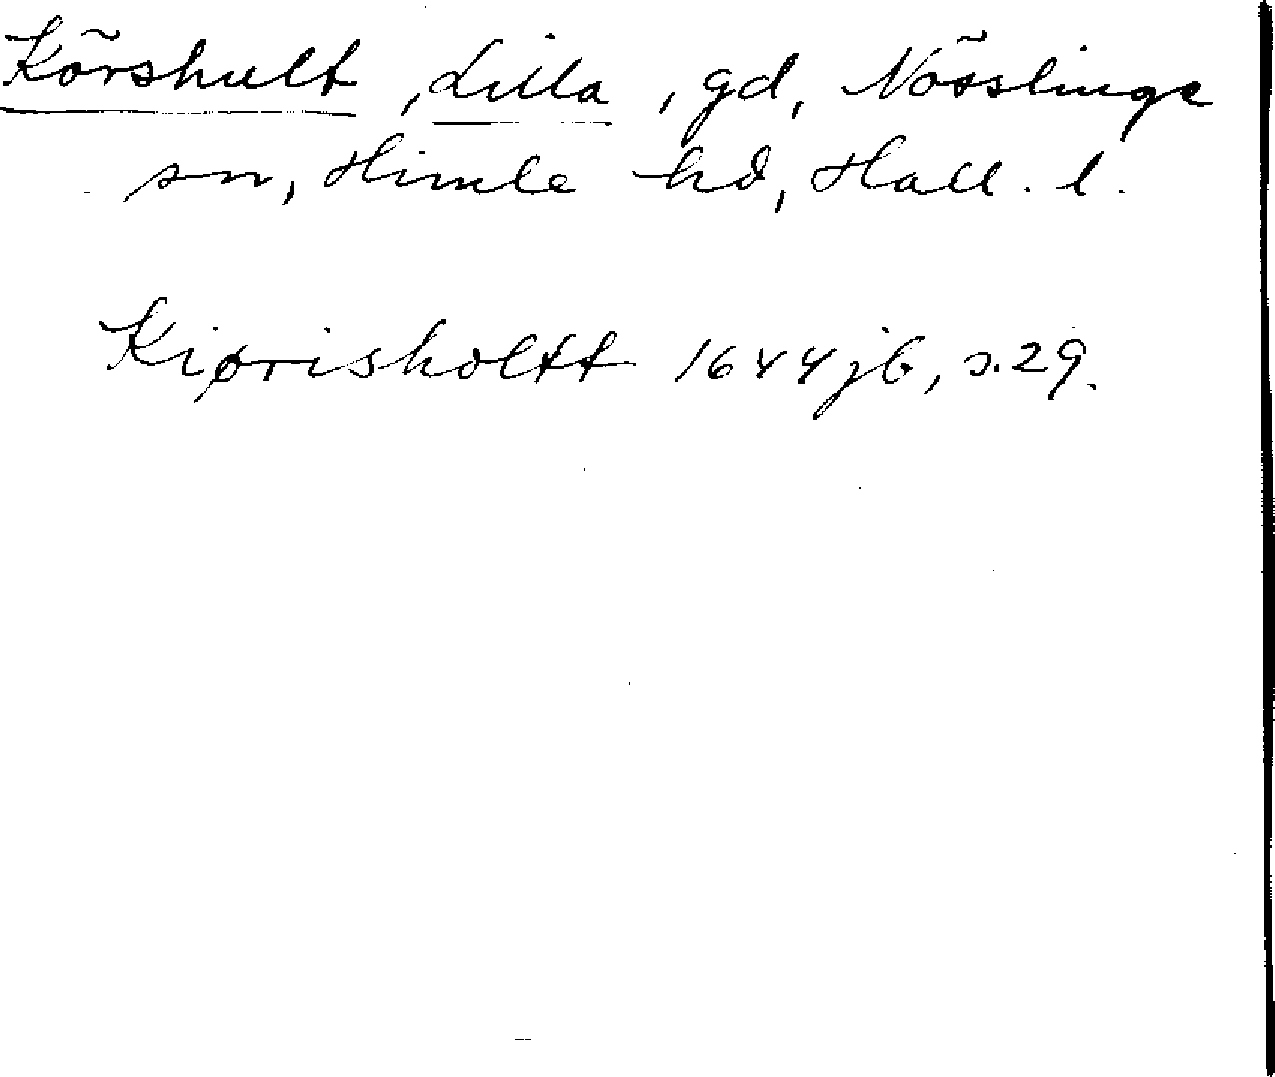 Körshult, Lilla, gd, Nösslinge
sn, Himle hd, Hall. l.
Kiørisholtt 1644 jb, s. 29.